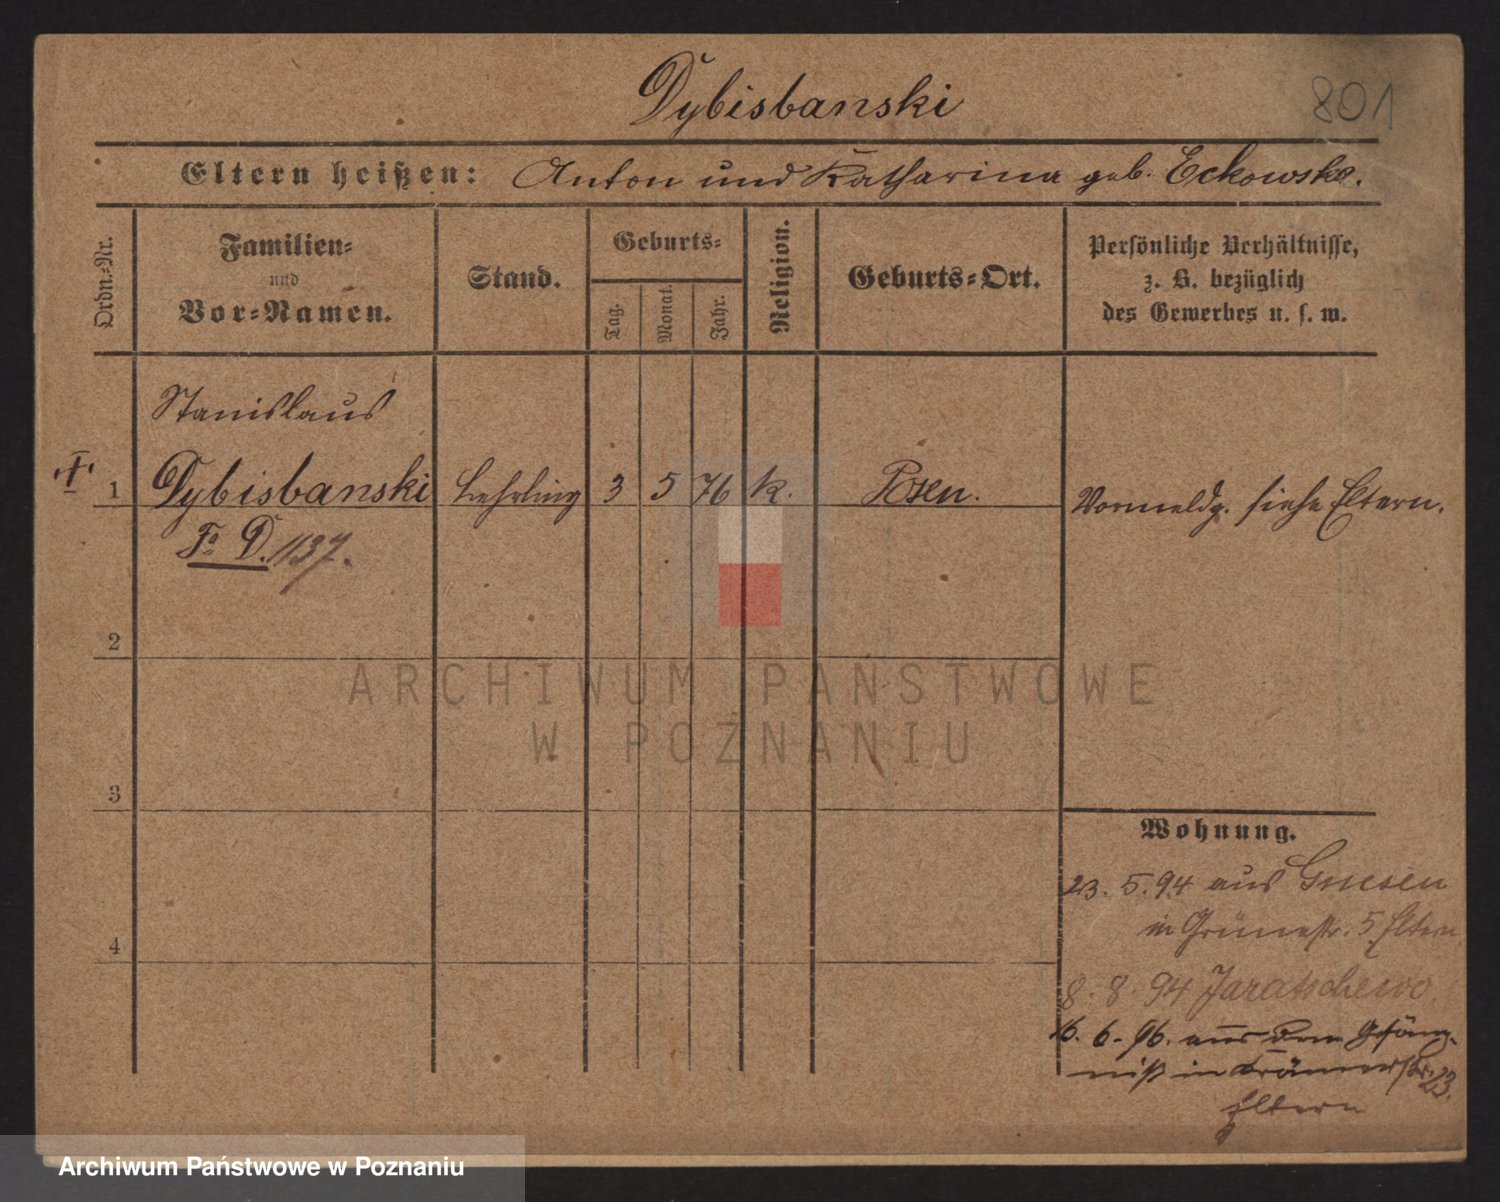 Dybisbanski
801
Eltern heißen: Anton und Katharina geb. Eckowska.
Ordn.-Nr.
Familien-
und
Vor-Namen.
Stand.
Geburts-
Tag.
Monat.
Jahr.
Religion.
Geburts-Ort.
Persönliche Verhältnisse,
z. B. bezüglich
des Gewerbes u. s. w.
Stanislaus
1 Dybisbanski Lehrling 3 5 76 k. Posen. Vormeldg. siehe Eltern.
Fo D. 1137.
2
3
4
Wohnung.
23. 5. 94 aus Gnesen
in Grünestr. 5 Eltern
8. 8. 94 Jaratschewo
16. 6. 96. aus dem Gefäng-
niß in Krämerstr. 23.
Eltern
ARCHIWUM PAŃSTWOWE
W POZNANIU
Archiwum Państwowe w Poznaniu